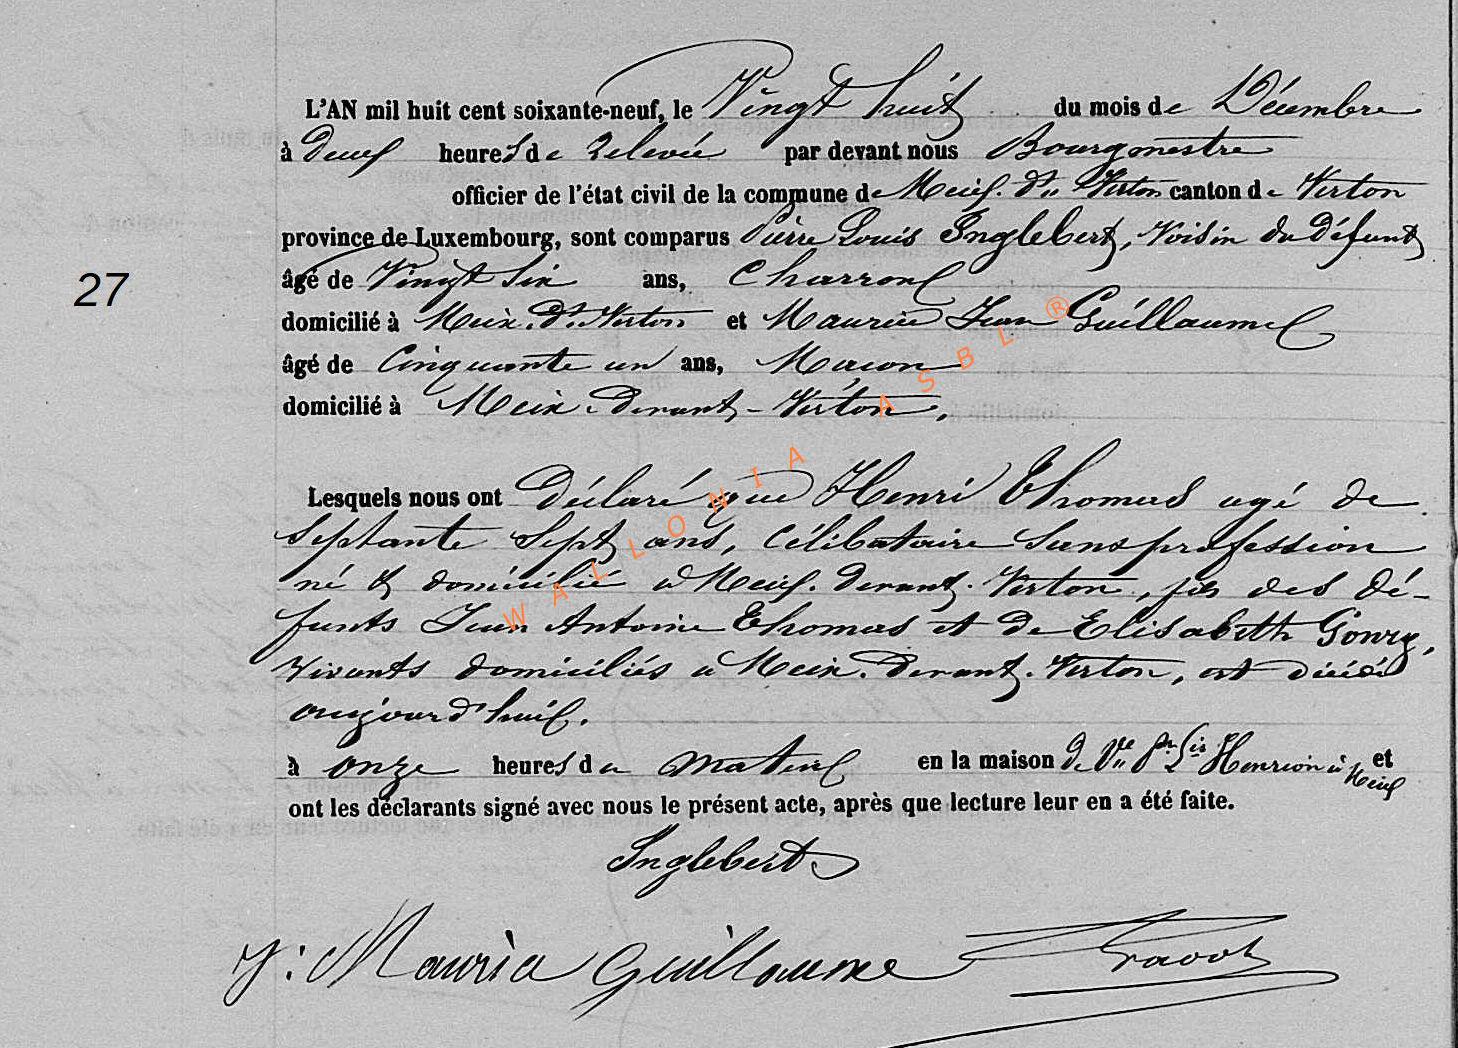 L'AN mil huit cent soixante-neuf, le Vingt huit du mois de Décembre
à Deux heures de Relevée par devant nous Bourgmestre
officier de l'état civil de la commune de Meix. dt Virton canton de Virton
province de Luxembourg, sont comparus Pierre Louis Inglebert, Voisin du Défunt
âgé de Vingt Six ans, Charron
27
domicilié à Meix. dt. Virton et Maurice Jean Guillaume
âgé de Cinquante un ans, Macon
domicilié à Meix-devant-Virton,
Lesquels nous ont Déclaré que Henri Thomas agé de
Septante Sept ans, Célibataire Sans profession
né et domicilié à Meix. devant. Virton, fils des Dé-
funts Jean Antoine Thomas et de Elisabeth Goury,
Vivants domiciliés à Meix. Devant. Virton, est décédé
aujourd'hui.
à onze heures du matin en la maison de Ve Henrion à Meix et
ont les déclarants signé avec nous le présent acte, après que lecture leur en a été faite.
Inglebert
J: Maurice Guillaume
WALLONIA ASBL ®